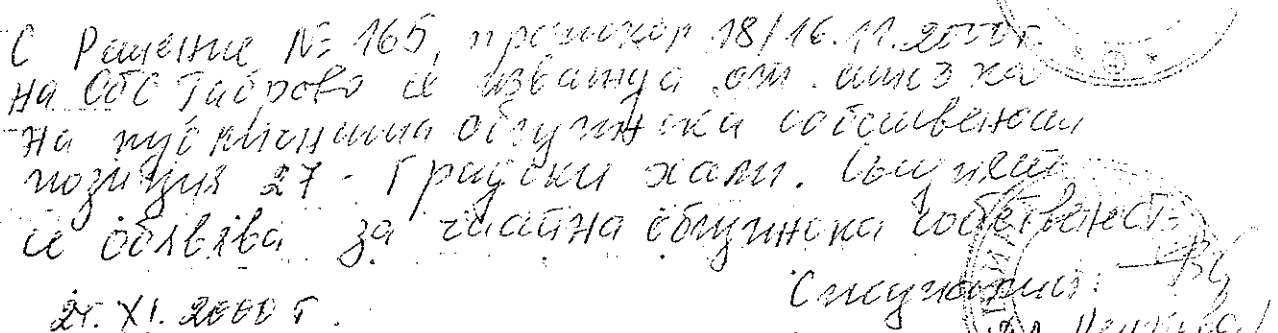 С Решение № 165, протокол 18/16.11.2000г.
на ОбС Габрово се изважда от списъка
на публичната общинска собственост
позиция 27 - Градски хали. Същият
се обявява за частна общинска собственост.
Служител:
XI. 2000 г.